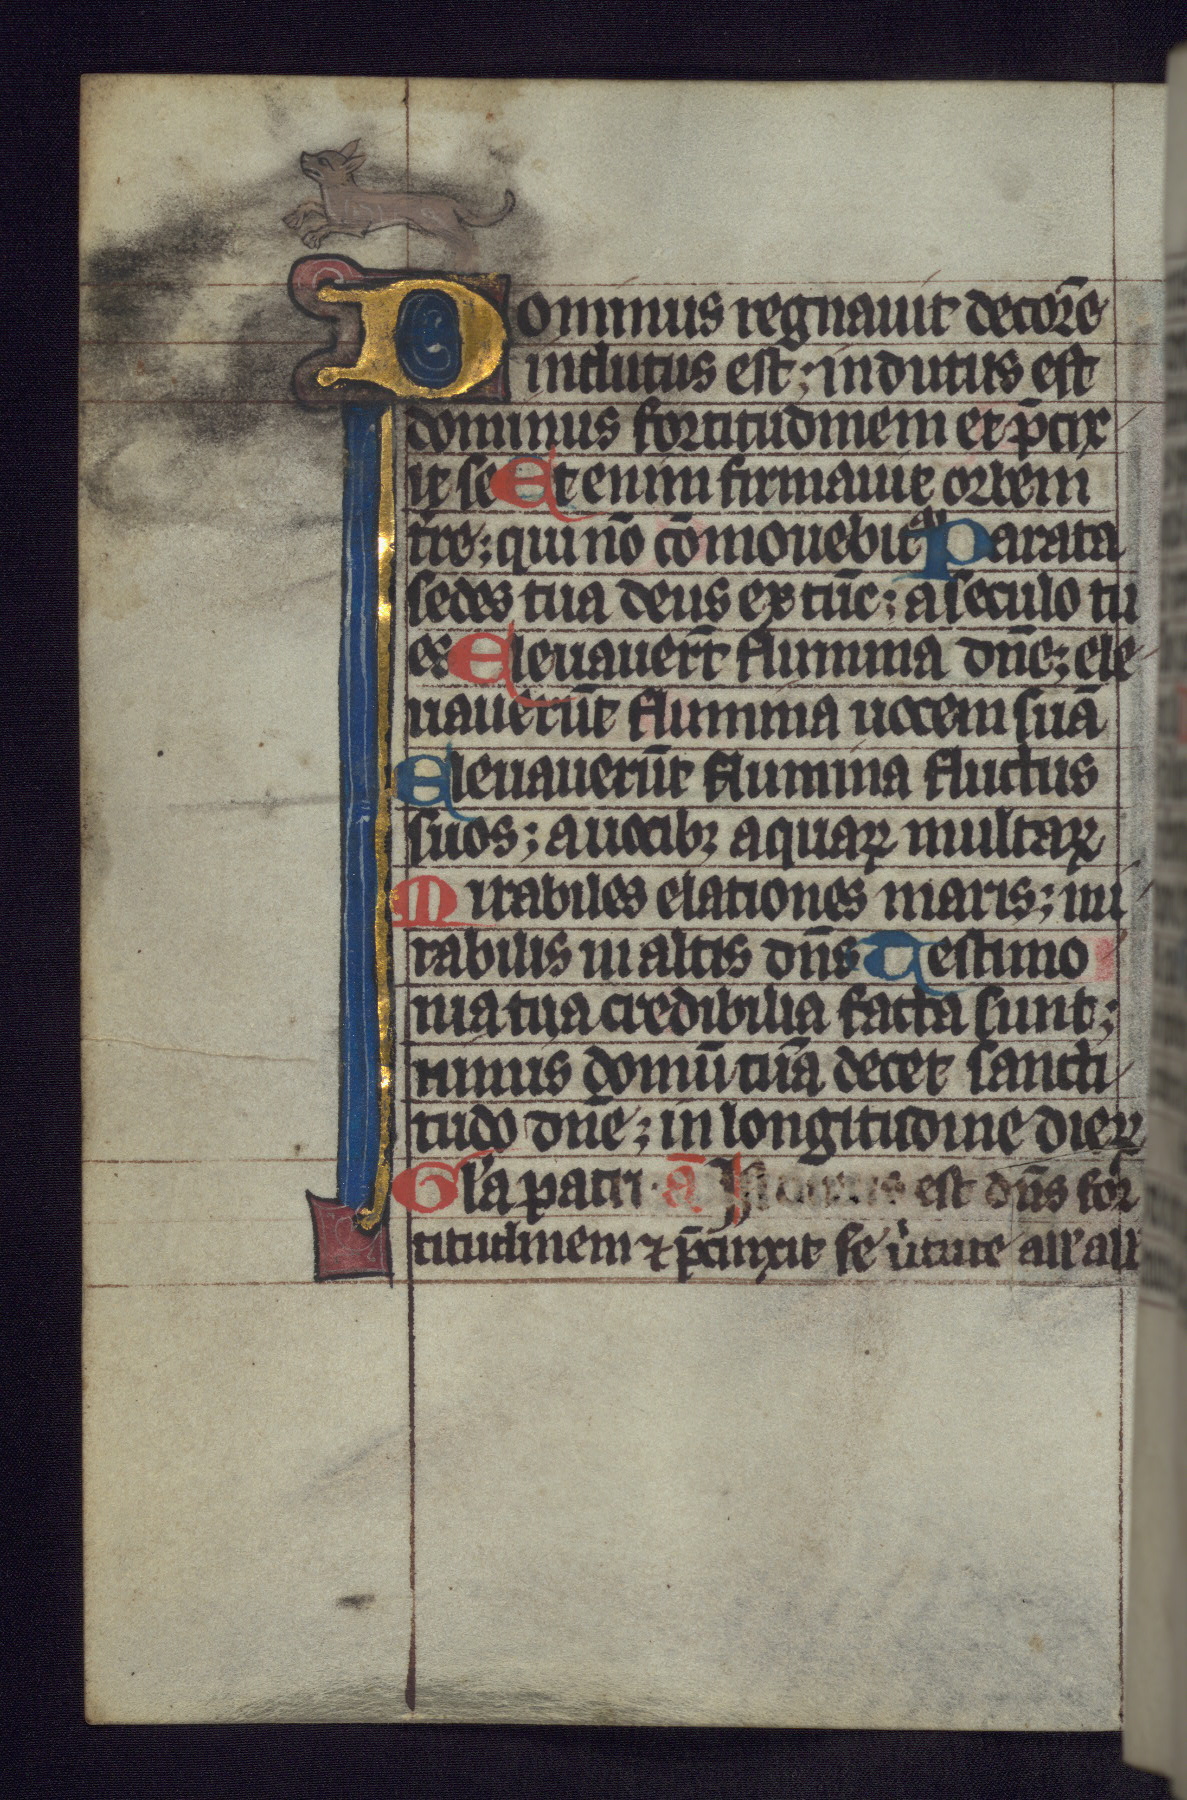 Dominus regnauit decorē
indutus est; indutus est
dominus fortitudinem et p̄cinx
it se Et enim firmauit orbem
t̄re; qui nō cōmouebit᷑ Parata
sedes tua deus ex tūc; a seculo tu
es Eleuauer̄t flumina dn̄e; ele
uauerūt flumina uocem suā
Eleuauerūt flumina fluctus
suos; a uocibꝫ aquaꝝ multaꝝ
Mirabiles elationes maris; mi
rabilis in altis dn̄s Testimo
nia tua credibilia facta sunt;
nimis domū tuā decet sancti
tudo dn̄e; in longitudine dieꝝ
Gl'a patri. a᷑ Indutus est dn̄s for
titudinem ⁊ p̄cinxit se u̾tute all'all'